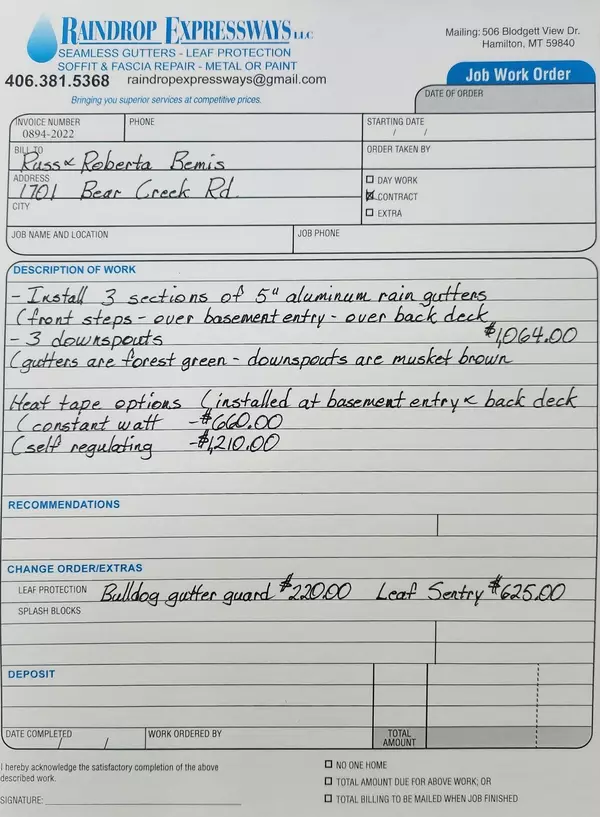 RAINDROP EXPRESSWAYS LLC
SEAMLESS GUTTERS - LEAF PROTECTION
SOFFIT & FASCIA REPAIR - METAL OR PAINT
406.381.5368 raindropexpressways@gmail.com
Bringing you superior services at competitive prices.
Mailing: 506 Blodgett View Dr.
Hamilton, MT 59840
Job Work Order
DATE OF ORDER
INVOICE NUMBER
0894-2022
PHONE
STARTING DATE
/ /
BILL TO
Russ & Roberta Bemis
ORDER TAKEN BY
ADDRESS
1701 Bear Creek Rd.
CITY
DAY WORK
CONTRACT
EXTRA
JOB NAME AND LOCATION
JOB PHONE
DESCRIPTION OF WORK
- Install 3 sections of 5" aluminum rain gutters
(front steps - over basement entry - over back deck
- 3 downspouts $1,064.00
(gutters are forest green - downspouts are musket brown
Heat tape options (installed at basement entry & back deck
(constant watt -$660.00
(self regulating -$1,210.00
RECOMMENDATIONS
CHANGE ORDER/EXTRAS
LEAF PROTECTION Bulldog gutter guard $220.00 Leaf Sentry $625.00
SPLASH BLOCKS
DEPOSIT
DATE COMPLETED
/ /
WORK ORDERED BY
TOTAL AMOUNT
I hereby acknowledge the satisfactory completion of the above
described work.
SIGNATURE:
NO ONE HOME
TOTAL AMOUNT DUE FOR ABOVE WORK; OR
TOTAL BILLING TO BE MAILED WHEN JOB FINISHED